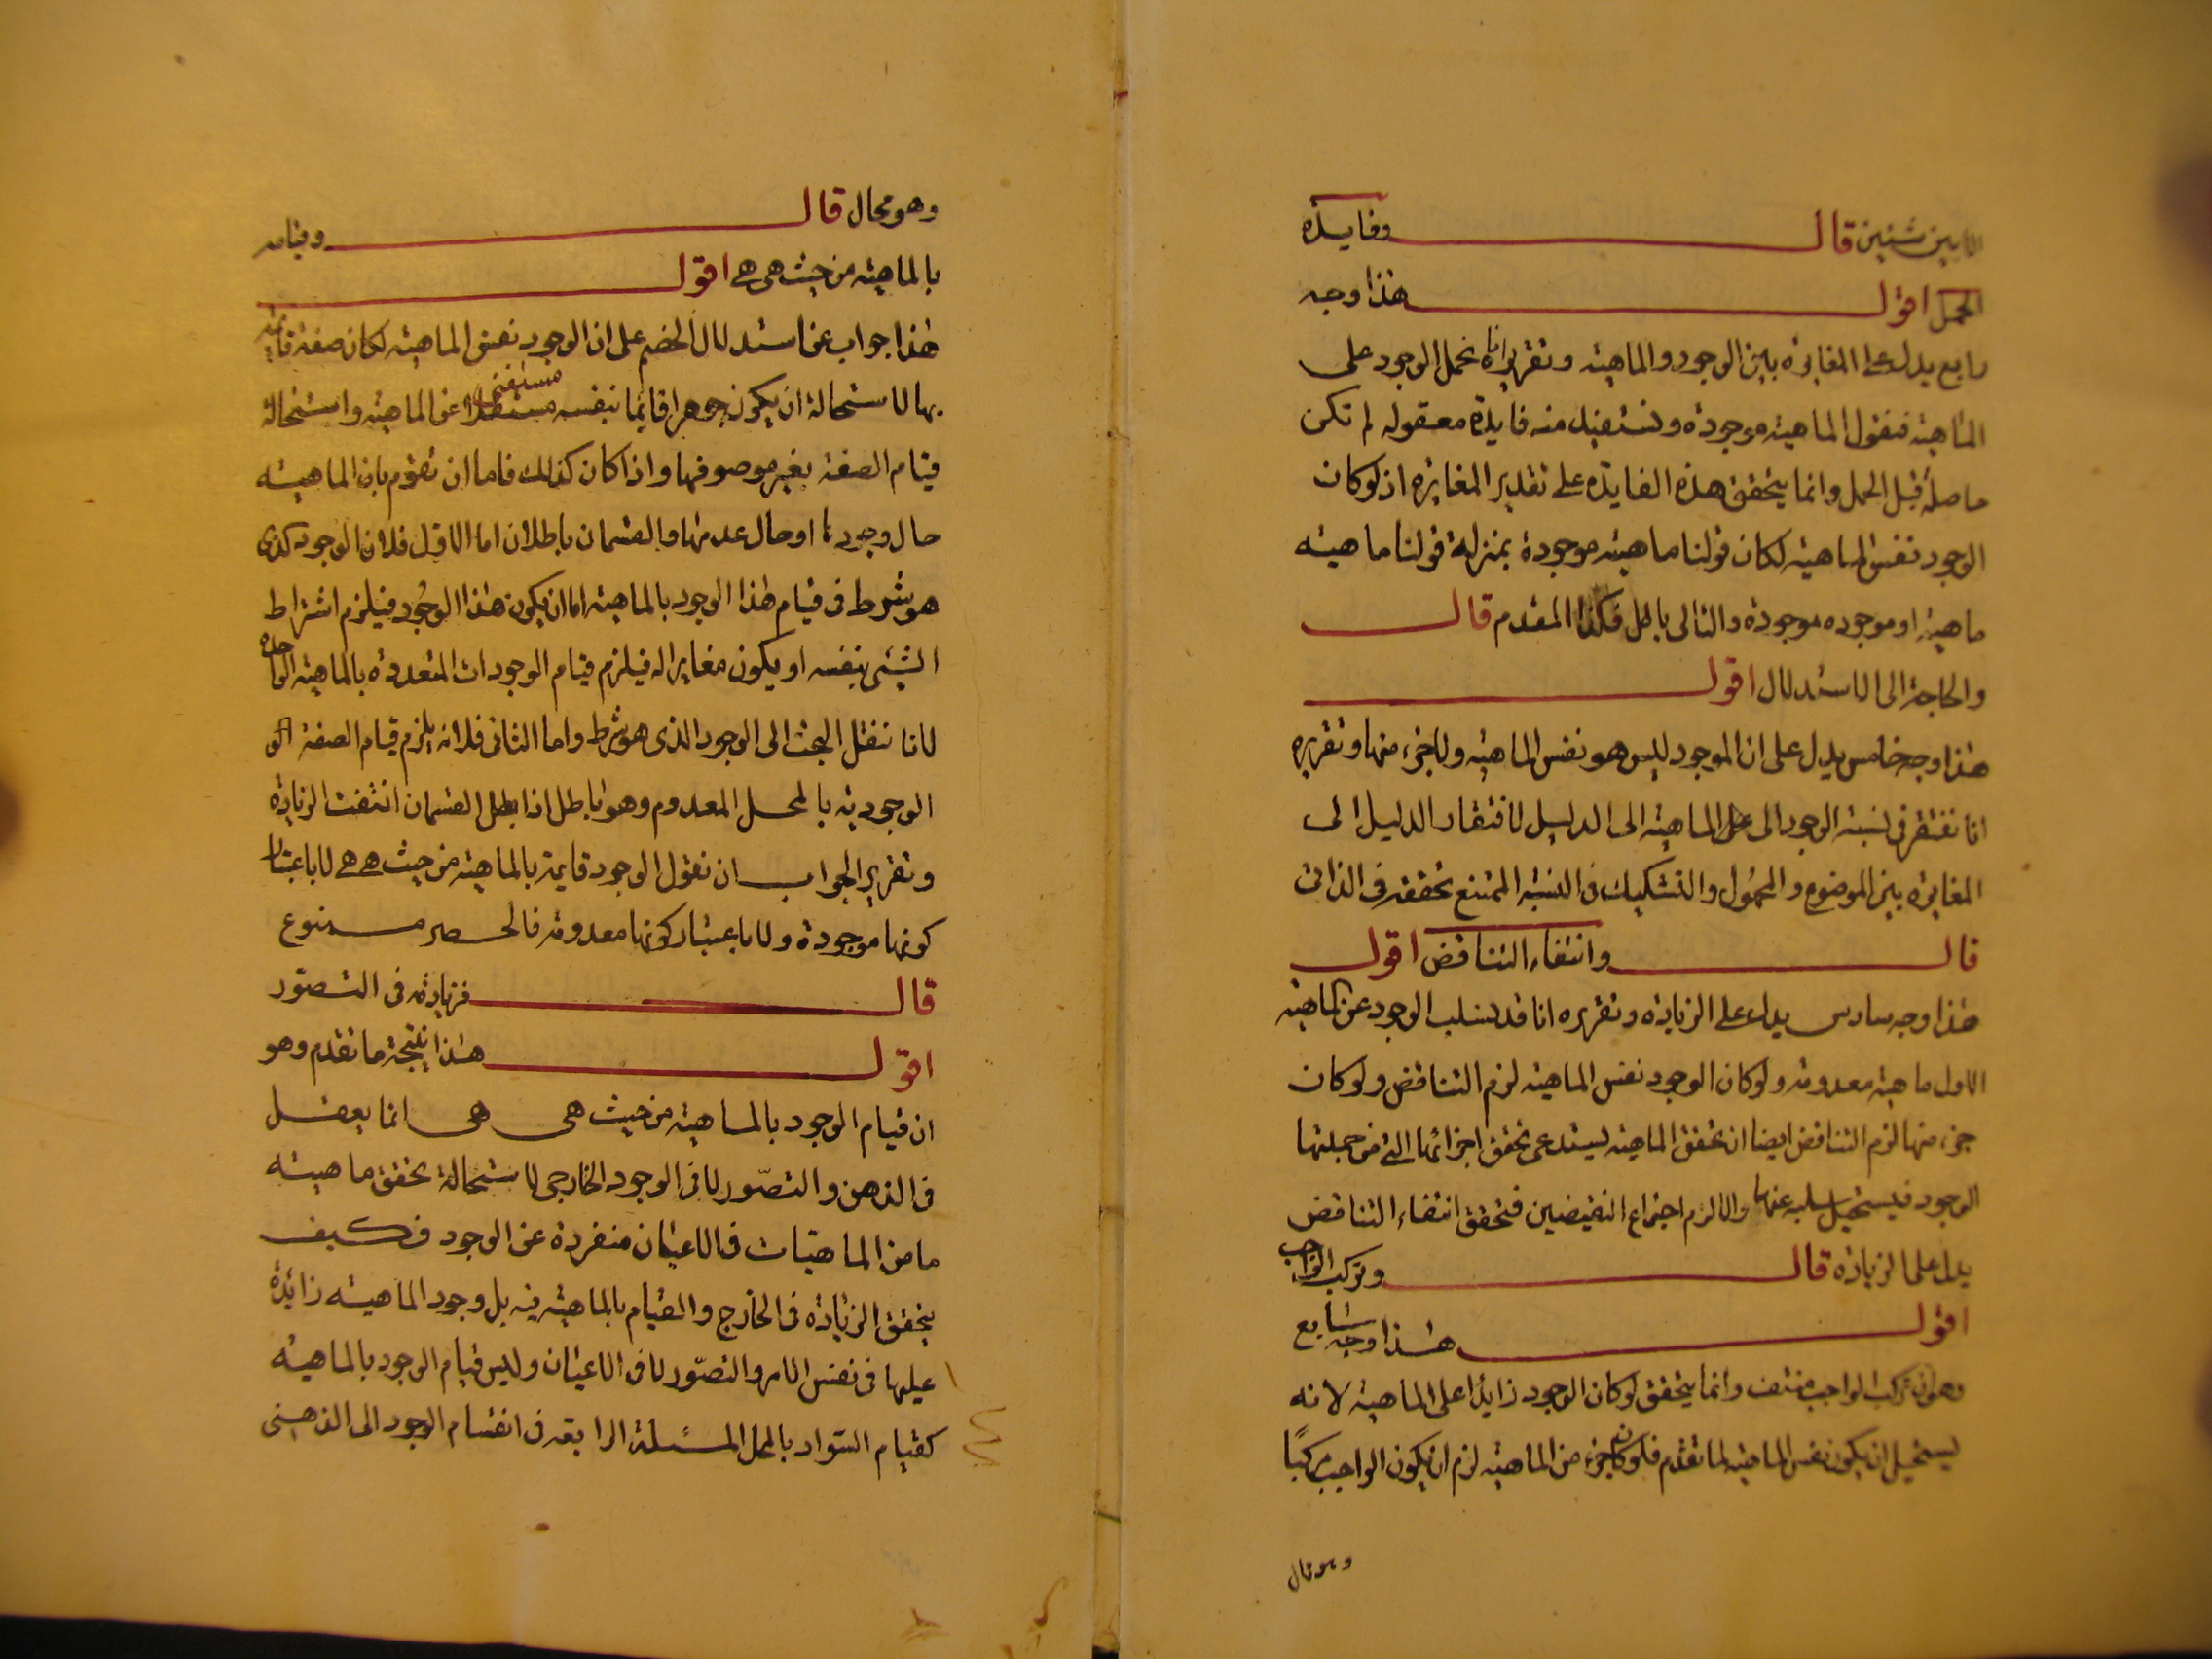 الا بين شيئين قال وفايدة
الحمل اقول هذا وجه
رابع يدل على المغايرة بين الوجود والماهية وتقريره انا نحمل الوجود على
الماهية فنقول الماهية موجودة ونستفيد منه فايدة معقولة لم تكن
حاصلة قبل الحمل وانما يتحقق هذه الفايدة على تقدير المغايرة اذ لو كان
الوجود نفس الماهية لكان قولنا ماهية موجودة بمنزلة قولنا ماهية
ماهية او موجودة موجودة والتالى باطل فكذا المقدم قال
والحاجة الى الاستدلال اقول
هذا وجه خامس يدل على ان الموجود ليس هو نفس الماهية ولا جزء منها وتقريره
انا نفتقر فى نسبة الوجود الى الماهية الى الدليل لافتقار الدليل الى
المغايرة بين الموضوع والمحمول والتشكيك فى النسبة الممتنع تحققه فى الذاتى
قال وانتفاء التناقض اقول
هذا وجه سادس يدل على الزيادة وتقريره انا قد نسلب الوجود عن الماهية
الاول ماهية معدومة ولو كان الوجود نفس الماهية لزم التناقض ولو كان
جزء منها لزم التناقض ايضا ان تحقق الماهية يستدعى تحقق اجزائها التى من جملتها
الوجود فيستحيل سلبه عنها والا لزم اجتماع النقيضين فتحقق انتفاء التناقض
يدل على الزيادة قال وتركب الواجب
اقول هذا وجه سابع
وهو ان تركب الواجب منتف وانما يتحقق لو كان الوجود زايدا على الماهية لانه
يستحيل ان يكون نفس الماهية لما تقدم فلو كان جزء من الماهية لزم ان يكون الواجب مركبًا
وهو محال
وهو محال قال وقيامه
بالماهية من حيث هى هى اقول
هذا جواب عن استدلال الخصم على ان الوجود نفس الماهية لكان صفة قايمة
بها لاستحالة ان يكون جوهرا قايما بنفسه مستغنى عن الماهية واستحالة
قيام الصفة بغير موصوفها واذا كان كذلك فاما ان تقوم بان الماهية
حال وجودها او حال عدمها والقسمان باطلان اما الاول فلان الوجود كذى
هو شرط فى قيام هذا الوجود بالماهية اما ان يكون هذا الوجود فيلزم اشتراط
الشيئ بنفسه او يكون مغايرا له فيلزم قيام الوجودات المتعددة بالماهية الواحدة
لانا ننقل البحث الى الوجود الذى هو شرط واما الثانى فلانه يلزم قيام الصفة الو
الوجودية بالمحل المعدوم وهو باطل اذا بطل القسمان انتفت الزيادة
وتقرير الجواب ان نقول الوجود قايمة بالماهية من حيث هى هى لا باعتبار
كونها موجودة ولا باعتبار كونها معدومة فالحصر ممنوع
قال فزيادته فى التصوّر
اقول هذا نتيجة ما تقدم وهو
ان قيام الوجود بالماهية من حيث هى هى انما يعقل
فى الذهن والتصوّر لا فى الوجود الخارجى لاستحالة تحقق ماهية
ما من الماهيات فى الاعيان منفردة عن الوجود فكيف
يتحقق الزيادة فى الخارج والقيام بالماهية فيه بل وجود الماهية زائدة
عليها فى نفس الامر والتصوّر لا فى الاعيان وليس قيام الوجود بالماهية
كقيام السواد بالمحل المسئلة الرابعة فى انقسام الوجود الى الذهنى